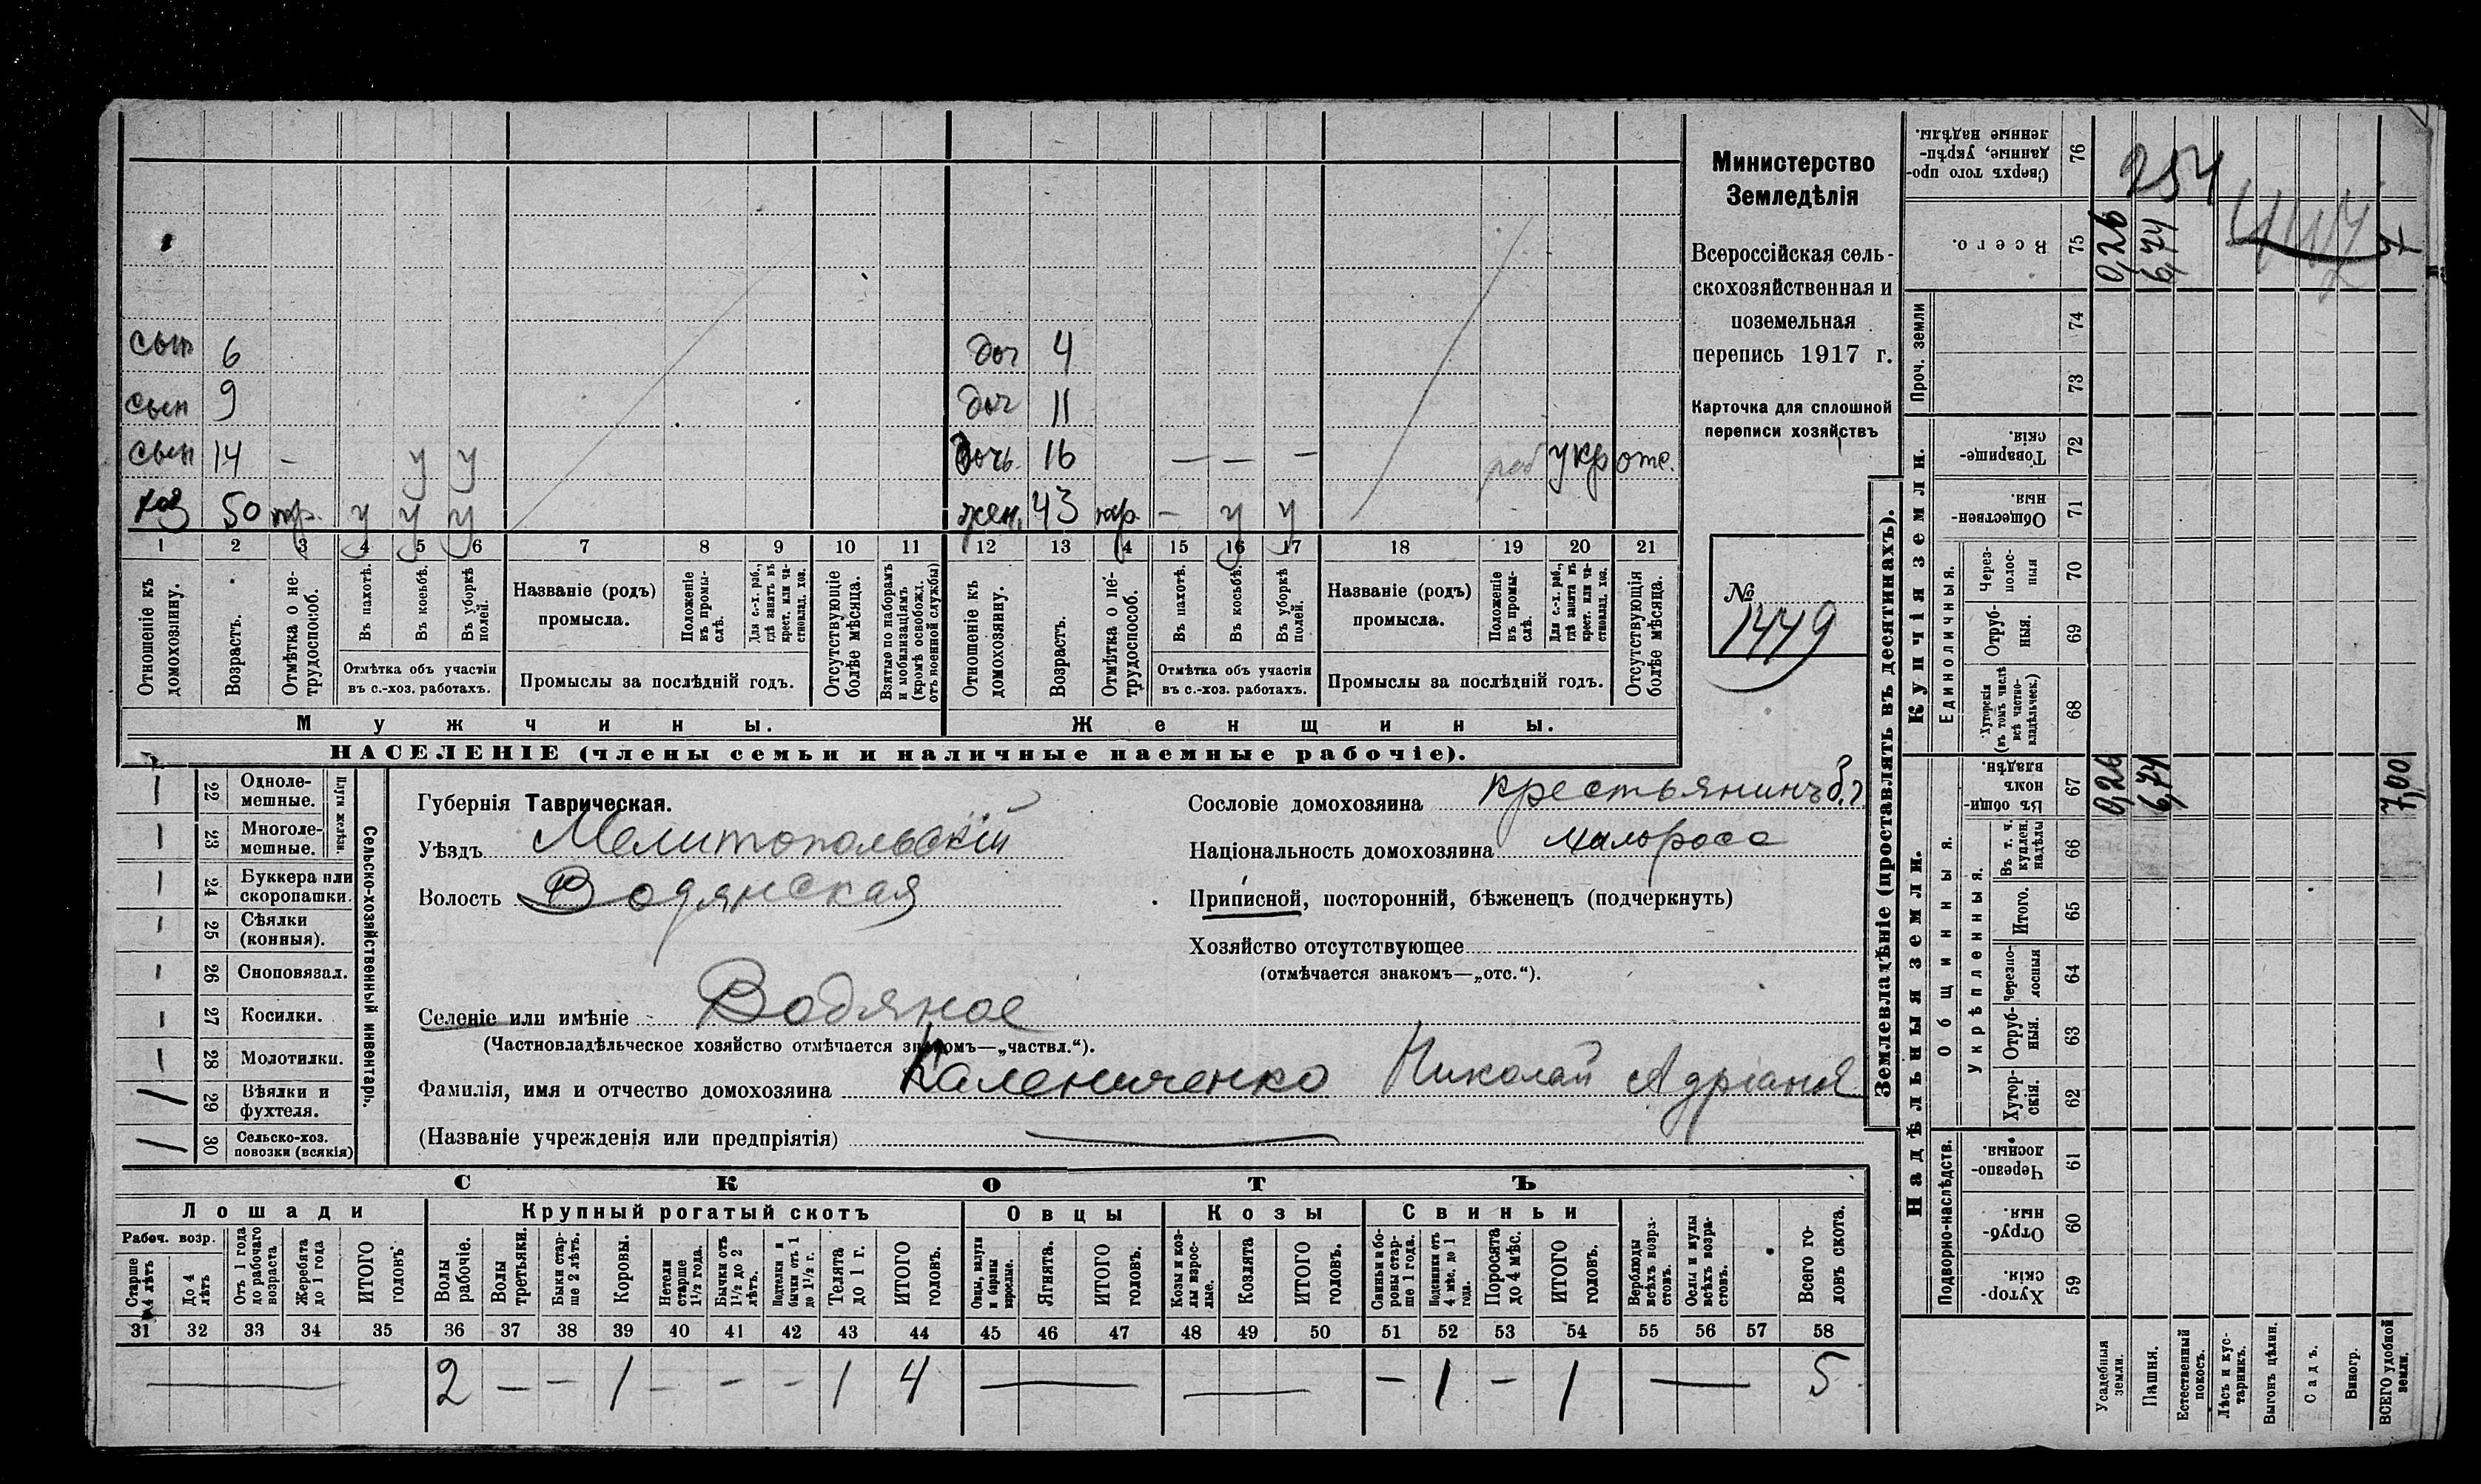 Министерство
Земледѣлія
Всероссійская сель-
скохозяйственная и
поземельная
перепись 1917 г.
Карточка для сплошной
переписи хозяйствъ
№
1449
сын 6
сын 9
сын 14 – у у
хоз 50 тр. у у у
доч 4
доч 11
дочь 16 — — — раб укр отс.
жен. 43 тр. – у у
1 2 3 4 5 6 7 8 9 10 11 12 13 14 15 16 17 18 19 20 21
Отношеніе къ домохозяину.
Возрастъ.
Отмѣтка о не-
трудоспособ.
Въ пахотѣ.
Въ косьбѣ.
Въ уборкѣ полей.
Отмѣтка объ участіи
въ с.-хоз. работахъ.
Названіе (родъ)
промысла.
Положеніе
въ промы-
слѣ.
Для с.-х. раб.,
гдѣ занятъ въ
крест. или ча-
стновлад. хоз.
Промыслы за послѣдній годъ.
Отсутствующіе
болѣе мѣсяца.
Взятые по наборамъ
и мобилизаціямъ
(кромѣ освобожд.
отъ военной службы)
Отношеніе къ
домохозяину.
Возрастъ.
Отмѣтка о не-
трудоспособ.
Въ пахотѣ.
Въ косьбѣ.
Въ уборкѣ
полей.
Отмѣтка объ участіи
въ с.-хоз. работахъ.
Названіе (родъ)
промысла.
Положеніе
въ промы-
слѣ.
Для с.-х. раб.,
гдѣ занята въ
крест. или ча-
стновлад. хоз.
Промыслы за послѣдній годъ.
Отсутствующія
болѣе мѣсяца.
Мужчины.
Женщины.
НАСЕЛЕНІЕ (члены семьи и наличные наемные рабочіе).
Сельско-хозяйственный инвентарь.
Плуги желѣзн.
— 22 Одноле-
мешные.
— 23 Многоле-
мешные.
— 24 Буккера или
скоропашки.
— 25 Сѣялки
(конныя).
— 26 Сноповязал.
— 27 Косилки.
— 28 Молотилки.
/ 29 Вѣялки и
фухтеля.
/ 30 Сельско-хоз.
повозки (всякія)
Губернія Таврическая.
Уѣздъ Мелитопольскій
Волость Водянская
Селеніе или имѣніе Водяное
(Частновладѣльческое хозяйство отмѣчается знакомъ—„частвл.“).
Фамилія, имя и отчество домохозяина Калениченко Николай Адріанов
(Названіе учрежденія или предпріятія)
Сословіе домохозяина крестьянинъ б.г
Національность домохозяина малоросс
Приписной, посторонній, бѣженецъ (подчеркнуть)
Хозяйство отсутствующее
(отмѣчается знакомъ—„отс.“).
СКОТЪ
Лошади
Крупный рогатый скотъ
Овцы
Козы
Свиньи
Рабоч. возр.
Старше
4 лѣтъ
До 4
лѣтъ
Отъ 1 года
до рабочаго
возраста
Жеребята
до 1 года
ИТОГО
головъ
Волы
рабочіе.
Волы
третьяки.
Быки стар-
ше 2 лѣтъ.
Коровы.
Нетели
старше
1½ года.
Бычки отъ
1½ до 2
лѣтъ.
Подтелки и
бычки отъ 1
до 1½ г.
Телята
до 1 г.
ИТОГО
головъ.
Овцы, валухи
и бараны
взрослые.
Ягнята.
ИТОГО
головъ.
Козы и коз-
лы взрос-
лые.
Козлята
ИТОГО
головъ.
Свиньи и бо-
ровы стар-
ше 1 года.
Подсвинки отъ
4 мѣс. до 1
года.
Поросята
до 4 мѣс.
ИТОГО
головъ.
Верблюды
всѣхъ возра-
стовъ.
Ослы и мулы
всѣхъ возра-
стовъ.
Всего го-
ловъ скота.
31 32 33 34 35 36 37 38 39 40 41 42 43 44 45 46 47 48 49 50 51 52 53 54 55 56 57 58
— 2 – – 1 – – – 1 4 — — – 1 – 1 — 5
Землевладѣніе (проставлять въ десятинахъ).
Надѣльныя земли.
Купчія земли.
Проч. земли
Подворно-наслѣдств.
Общинныя.
Укрѣпленныя.
Единоличныя.
Сверхъ того про-
данные, укрѣп-
ленные надѣлы. 76
Всего. 75
74
73
Товарище-
скія. 72
Обществен-
ныя. 71
Через-
полос-
ныя 70
Отруб-
ныя. 69
Хуторскія
(въ томъ числѣ
всѣ частно-
владѣльческ.) 68
Въ общин-
номъ
владѣн. 67
Въ т. ч.
куплен.
надѣлы 66
Итого. 65
Черезпо-
лосныя 64
Отруб-
ныя. 63
Хутор-
скія. 62
Черезпо-
лосныя. 61
Отруб-
ныя. 60
Хутор-
скія. 59
Усадебныя
земли.
Пашня.
Естественный
покосъ.
Лѣсъ и кус-
тарникъ.
Выгонъ цѣлин.
Садъ.
Виногр.
ВСЕГО удобной
земли.
254
0,26
6,74
7
0,26
6,74
7,00